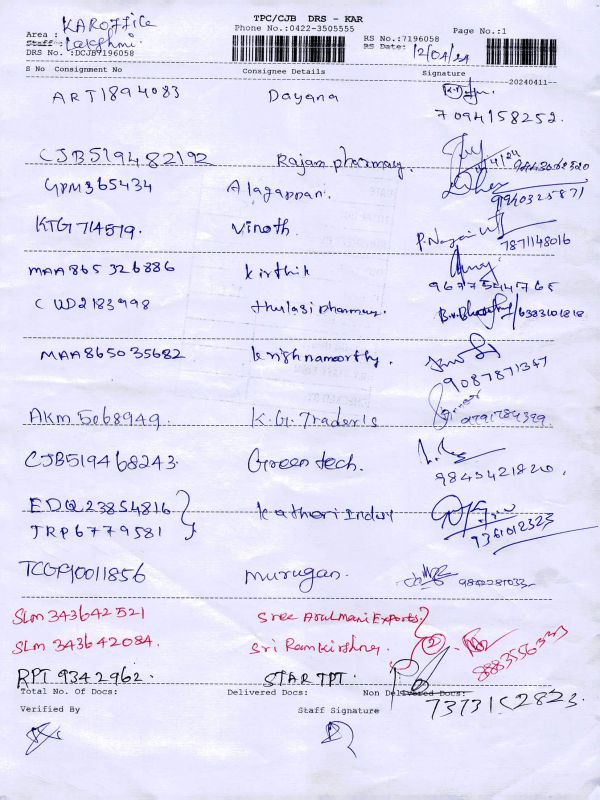 TPC/CJB DRS - KAR
Phone No.:0422-3505555
KAR OFFICE
Area :
Staff: Lakshmi
DRS No. :DCJB7196058
RS No.:7196058
RS Date: 12/04/24
Page No.:1
S No Consignment No Consignee Details Signature
--20240411--
ART1894083 Dayana
7094158252.
CJB519482192 Rajam pharmacy.
GPM365434 Alagappan. 9940325871
KTG1714519. Vinoth 7871148016
MAA865326886 Kirthik
9677544765
CUD2183998 thulasi pharmacy. 6383101818
MAA865035682 krishnamorthy.
9087871347
AKM5068949. K.G. Traders
CJB519468243. Green tech.
9843421820.
EDQ23854816
JRP6779581 9361012323
TCG90011856 Murugan. 9842281033
SLM 343642521 Sree Arulmani Exports.
SLM 343642084. Sri Ramkirshna 2
RPT 9342962. STAR TPT.
Total No. Of Docs: Delivered Docs: Non Delivered Docs:
7373102823.
Verified By Staff Signature